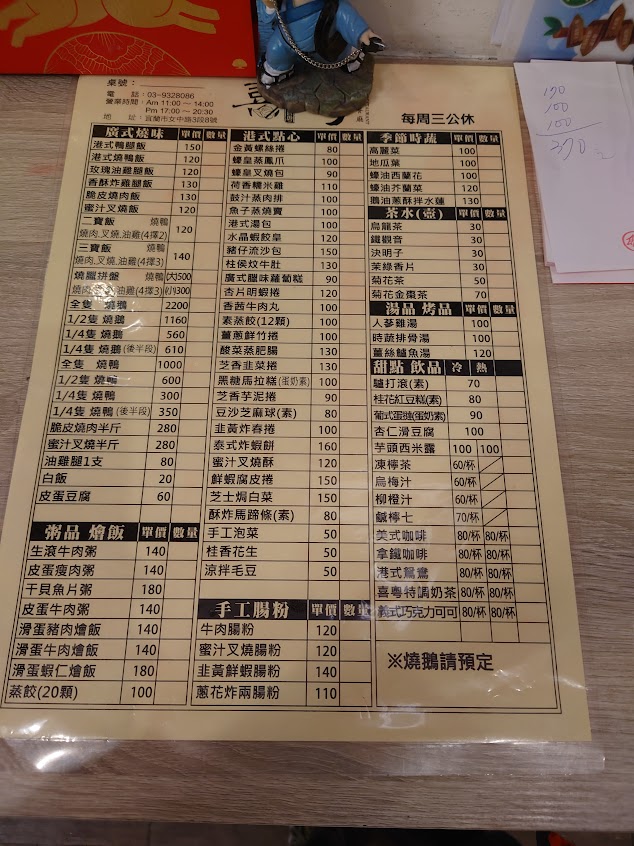 桌號:
電 話:03-9328086
營業時間:Am 11:00 ~ 14:00
Pm 17:00 ~ 20:30
地 址:宜蘭市女中路3段8號
喜
每周三公休
廣式燒味 單價 數量
港式鴨腿飯 150
港式燒鴨飯 120
玫瑰油雞腿飯 120
香酥炸雞腿飯 130
脆皮燒肉飯 130
蜜汁叉燒飯 120
二寶飯 燒鴨
燒肉.叉燒.油雞(4擇2) 120
三寶飯 燒鴨
燒肉.叉燒.油雞(4擇3) 140
燒臘拼盤 燒鴨 (大)500
燒肉.叉燒.油雞(4擇3) (小)300
全隻 燒鵝 2200
1/2隻 燒鵝 1160
1/4隻 燒鵝 560
1/4隻 燒鵝(後半段) 610
全隻 燒鴨 1000
1/2隻 燒鴨 600
1/4隻 燒鴨 300
1/4隻 燒鴨(後半段) 350
脆皮燒肉半斤 280
蜜汁叉燒半斤 280
油雞腿1支 80
白飯 20
皮蛋豆腐 60
粥品 燴飯 單價 數量
生滾牛肉粥 140
皮蛋瘦肉粥 140
干貝魚片粥 180
皮蛋牛肉粥 140
滑蛋豬肉燴飯 140
滑蛋牛肉燴飯 140
滑蛋蝦仁燴飯 180
蒸餃(20顆) 100
港式點心 單價 數量
金黃螺絲捲 80
蠔皇蒸鳳爪 100
蠔皇叉燒包 90
荷香糯米雞 110
豉汁蒸肉排 100
魚子蒸燒賣 100
港式湯包 100
水晶蝦餃皇 120
豬仔流沙包 150
柱侯炆牛肚 130
廣式臘味蘿蔔糕 90
杏片明蝦捲 120
香茜牛肉丸 100
素蒸餃(12顆) 100
薑蔥鮮竹捲 100
酸菜蒸肥腸 130
芝香韭菜捲 130
黑糖馬拉糕(蛋奶素) 100
芝香芋泥捲 90
豆沙芝麻球(素) 80
韭黃炸春捲 100
泰式炸蝦餅 160
蜜汁叉燒酥 120
鮮蝦腐皮捲 150
芝士焗白菜 150
酥炸馬蹄條(素) 80
手工泡菜 50
桂香花生 50
涼拌毛豆 50
手工腸粉 單價 數量
牛肉腸粉 120
蜜汁叉燒腸粉 120
韭黃鮮蝦腸粉 140
蔥花炸兩腸粉 110
季節時蔬 單價 數量
高麗菜 100
地瓜葉 100
蠔油西蘭花 100
蠔油芥蘭菜 120
鵝油蔥酥拌水蓮 130
茶水(壺) 單價 數量
烏龍茶 30
鐵觀音 30
決明子 30
茉綠香片 30
菊花茶 50
菊花金棗茶 70
湯品 燉品 單價 數量
人蔘雞湯 100
時蔬排骨湯 100
薑絲鱸魚湯 120
甜點 飲品 冷 熱
驢打滾(素) 70
桂花紅豆糕(素) 80
葡式蛋撻(蛋奶素) 90
杏仁滑豆腐 100
芋頭西米露 100 100
凍檸茶 60/杯
烏梅汁 60/杯
柳橙汁 60/杯
鹹檸七 70/杯
美式咖啡 80/杯 80/杯
拿鐵咖啡 80/杯 80/杯
港式鴛鴦 80/杯 80/杯
喜粵特調奶茶 80/杯 80/杯
義式巧克力可可 80/杯 80/杯
※燒鵝請預定
170
100
100
370